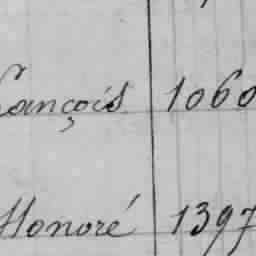 ançois 1060
Honoré 1397